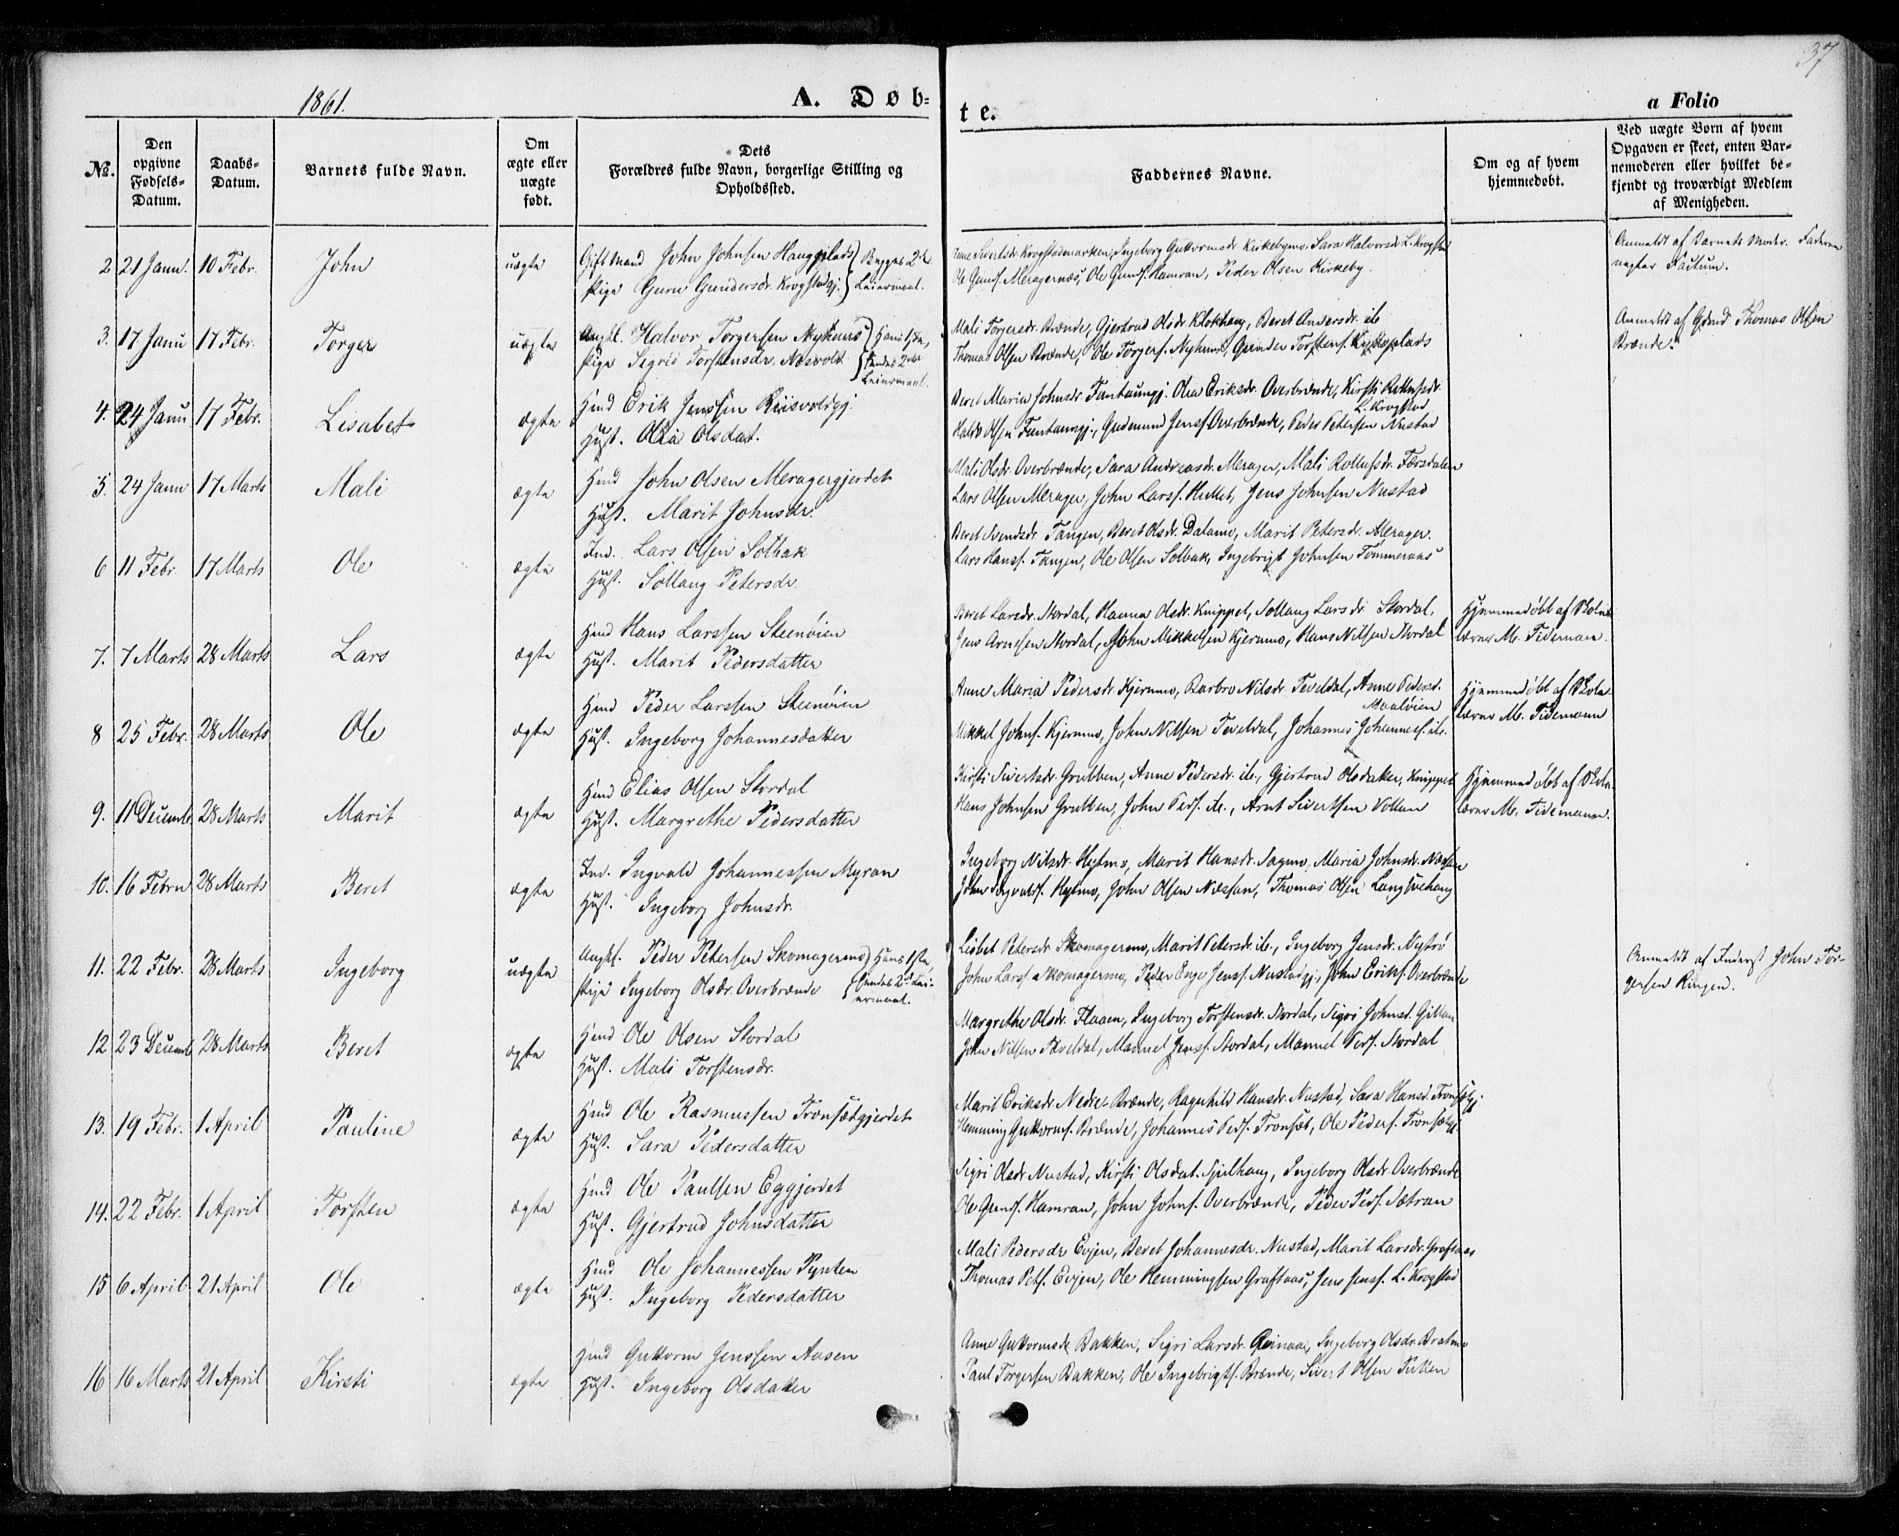 37
1861.
A. Døb-
te.
a Folio
№.
Den opgivne Fødsels-Datum.
Daabs-Datum.
Barnets fulde Navn.
Om ægte eller uægte født.
Dets Forældres fulde Navn, borgerlige Stilling og Opholdssted.
Faddernes Navne.
Om og af hvem hjemmedøbt.
Ved uægte Børn af hvem Opgaven er skeet, enten Barnemoderen eller hvilket bekjendt og troværdigt Medlem af Menigheden.
2 21 Janu. 10 Febr. John uægte
Gift Mand John Johnsen Haugplads
Pige Guru Gundersdr. Krogstadgj. Begges 2det Leiermaal.
Krogstadmarken, Ingeborg Guttormsdr. Kirkebymo, Sara Halvorsdr. L. Krogstad
Ole Gundf. Meragernæs, Ole Gundf. Hamran, Peder Olsen Kirkeby.
Anmeldt af Barnets Moder. Faderen
nægter Factum.
3. 17 Janu 17 Febr. Torger uægte
Ungkl. Halvor Torgersen Nyhuus Hans 1ste,
Pige Sigrid Torstensdr. Næsvold Hendes 2det Leiermaal.
Mali Torgersdr. Brænde, Gjertrud Olsdr. Klokhaug, Beret Andersdr. ib
Thomas Olsen Brænde, Ole Torgers. Nyhuus, Gunder Torstens.
Anmeldt af Gbmd Thomas Olsen
Brænde.
4. 24 Janu 17 Febr. Lisabet ægte
Hmd Erik Jenssen Riisvoldgj.
Hust. Olia Olsdat.
Beret Maria Johnsdr. Fantaungj. Olea Eriksdr. Overbrænde, Kirsti Rollufsdr. L. Krogstad
Olsen Fantaungj., Gudmund Jensf. Overbrænde, Peder Petersen Nustad
5. 24 Janu 17 Marts Mali ægte
Hmd John Olsen Meragergjerdet
Hust. Marit Johnsdr.
Mali Olsdr. Overbrænde, Sara Andreasdr. Merager, Mali Rollufsdr. Færsdalen
Lars Olsen Merager, John Larsf. Hullet, Jens Johnsen Nustad
6 11 Febr. 17 Marts Ole ægte
Ind. Lars Olsen Solbak
Hust. Sollaug Petersdr.
Beret Svendsdr. Tangen, Beret Olsdr. Dalamo, Marit Petersdr. Merager.
Lars Hansf. Tangen, Ole Olsen Solbak, Ingebrigt Johnsen Tømmeraas
7. 7 Marts 28 Marts Lars ægte
Hmd Hans Larssen Steenøien
Hust. Marit Pedersdatter
Beret Larsdr. Stordal, Hanna Olsdr. Knippet, Sollaug Larsdr. Stordal,
Jens Arnesen Stordal, John Mikkelsen Kjerumo, Hans Nilsen Stordal
Hjemmedøbt af Skole-
lærer M. Tidemann.
8 25 Febr. 28 Marts Ole ægte
Hmd Peder Larssen Steenøien
Hust. Ingeborg Johannesdatter
Anne Maria Pedersdr. Kjerumo, Barbro Nilsdr. Teveldal, Anne Pedersd.
Mikkel Johnf. Kjerumo, John Nilsen Teveldal, Johannes Johannesf. ib.
Hjemmedøbt af Skole-
lærer M. Tidemann
9. 11 Decemb 28 Marts Marit ægte
Hmd Elias Olsen Stordal
Hust. Margrethe Pedersdatter
Kirsti Sivertsdr. Grubben, Anne Pedersdr. ib., Gjertrud Olsdatter, Knippet
Hans Johnsen Grubben, John Pedf. ib., Arnt Sivertsen Vollan
Hjemmedøbt af Skole-
lærer M. Tidemann.
10. 16 Febru 28 Marts Beret ægte
Ind. Ingvald Johannessen Myran
Hust. Ingeborg Johnsdr.
Ingeborg Nilsdr. Hylmo, Marit Hansdr. Sagmo, Maria Johnsdr. Næssan
John Ingvaldf. Hylmo, John Olsen Næssan, Thomas Olsen
11. 22 Febr. 28 Marts Ingeborg uægte
Ungkl. Peder Petersen Skomagermo Hans 1ste,
Pige Ingeborg Olsdr. Overbrænde Hendes 2det Leiermaal.
Lisbet Petersdr. Skomagermo, Marit Petersdr. ib., Ingeborg Jensdr. Nytrø
John Larsf. Skomagermo, Peder Enge Jensf. Nustadgj., John Eriksf. Overbrænde
Anmeldt af Inderst John Tor-
gersen Ringen.
12 23 Decemb 28 Marts Beret ægte
Hmd Ole Olsen Stordal
Hust. Mali Torstensdr.
Margrethe Olsdr. Flaaen, Ingeborg Torstensdr. Stordal, Sigri Johnsd. Gilten
John Nilsen Teveldal, Manuel Jensf. Stordal, Manuel Pedf. Stordal
13. 19 Febr. 1 April Pauline ægte
Hmd Ole Rasmussen Tronsætgjerdet
Hust. Sara Pedersdatter
Marit Eriksdr. Nedre-Brænde, Ragnhild Hansdr. Nustad, Sara Hansd. Tronsætgj.
Hemming Guttormf. Brænde, Johannes Pedf. Tronsæt, Ole Pederf. Tronsætgj.
14. 22 Febr. 1 April Torsten ægte
Hmd Ole Paulsen Eggjerdet
Hust. Gjertrud Johnsdatter
Sigri Olsdr. Nustad, Kirsti Olsdat. Spelhaug, Ingeborg Olsdr. Overbrænde
Ole Gundf. Hamran, John Johnf. Overbrænde, Peder Pedf. Sætran
15 6 April 21 April Ole ægte
Hmd Ole Johannessen Pynten
Hust. Ingeborg Pedersdatter
Mali Pedersdr. Evjen, Beret Johannesdr. Nustad, Marit Larsdr. Graftaas
Thomas Petf. Evjen, Ole Hemmingsen Graftaas, Jens Jensf. L. Krogstad
16 16 Marts 21 April Kirsti ægte
Hmd Guttorm Jenssen Aasen
Hust. Ingeborg Olsdatter
Anne Guttormsdr. Bakken, Sigri Larsdr. Reinaa, Ingeborg Olsdr.
Paul Torgersen Bakken, Ole Ingebrigtf. Brænde, Sivert Olsen